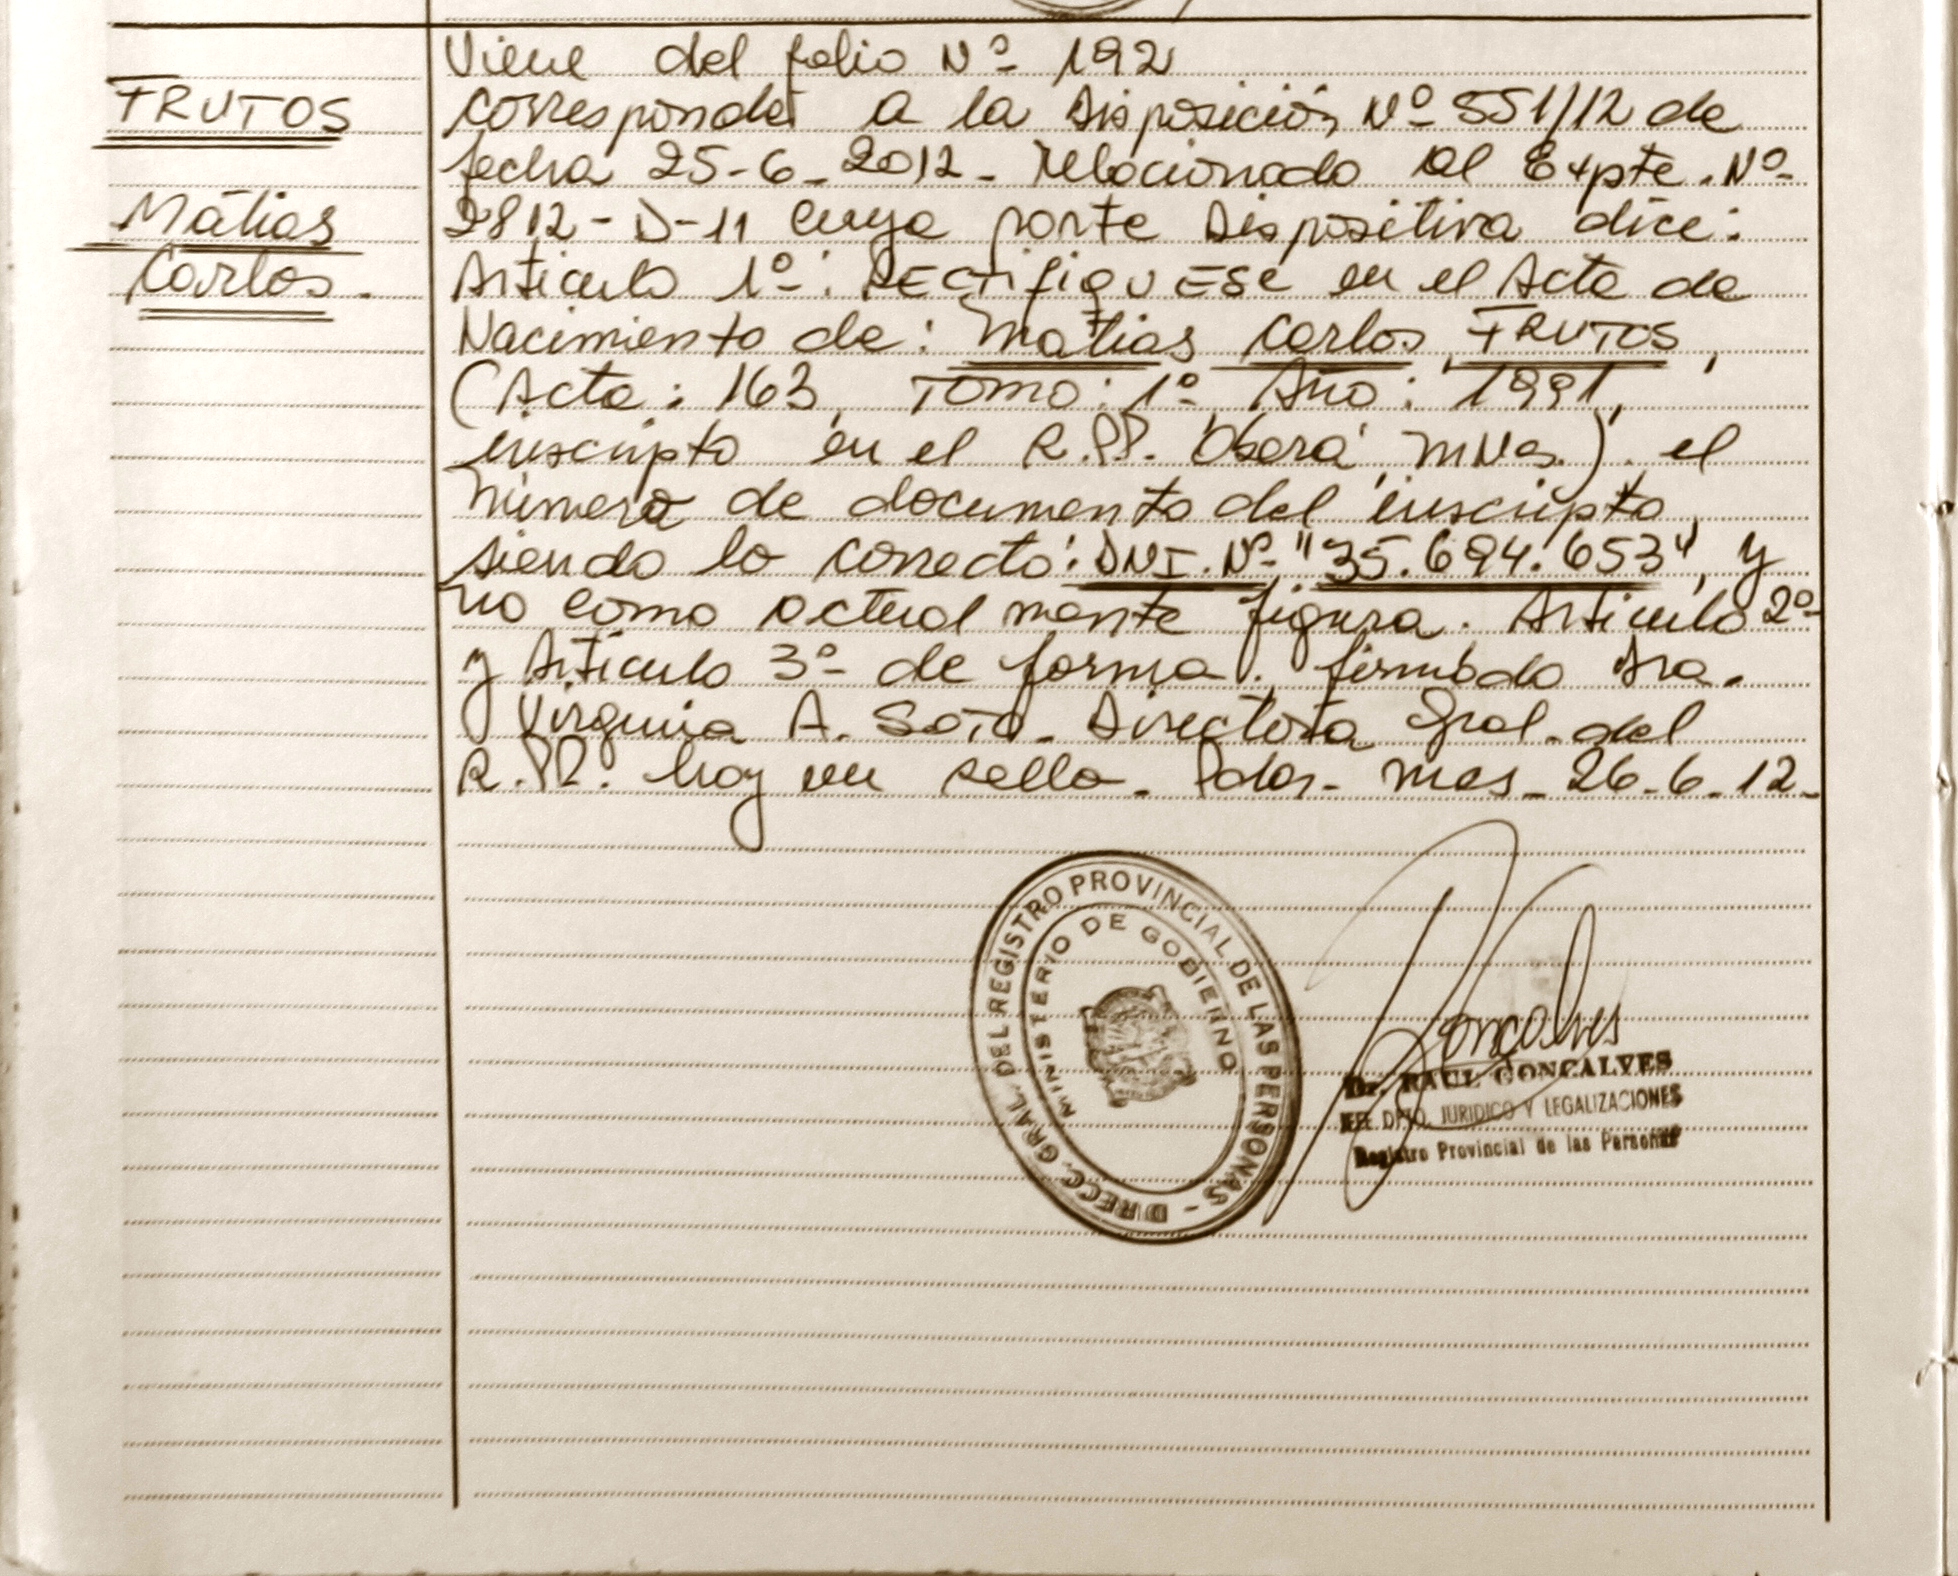 FRUTOS
Matias
Carlos.
Viene del folio Nº 192
corresponde a la Disposición Nº 551/12 de
fecha 25-6-2012- relacionado al Expte. Nº
2812-D-11 cuya parte Dispositiva dice:
Articulo 1º: RECTifiqUESE en el Acta de
Nacimiento de: Matias Carlos FRUTOS,
(Acta: 163, TOMO: 1º Año: 1991,
inscripto en el R.PP. Oberá, MNes.). el
número de documento del inscripto,
siendo lo correcto: DNI. Nº "35.694.653", y
no como actualmente figura. Articulo 2º
y Articulo 3º de forma. firmado Sra.
Virginia A. SOTO. Directora Gral. del
R.PP. hay un sello. Pdas. Mnes. 26-6-12-
DIRECC. GRAL. DEL REGISTRO PROVINCIAL DE LAS PERSONAS -
MINISTERIO DE GOBIERNO
Goncalves
Dr. RAUL GONCALVES
JEFE DPTO. JURIDICO Y LEGALIZACIONES
Registro Provincial de las Personas